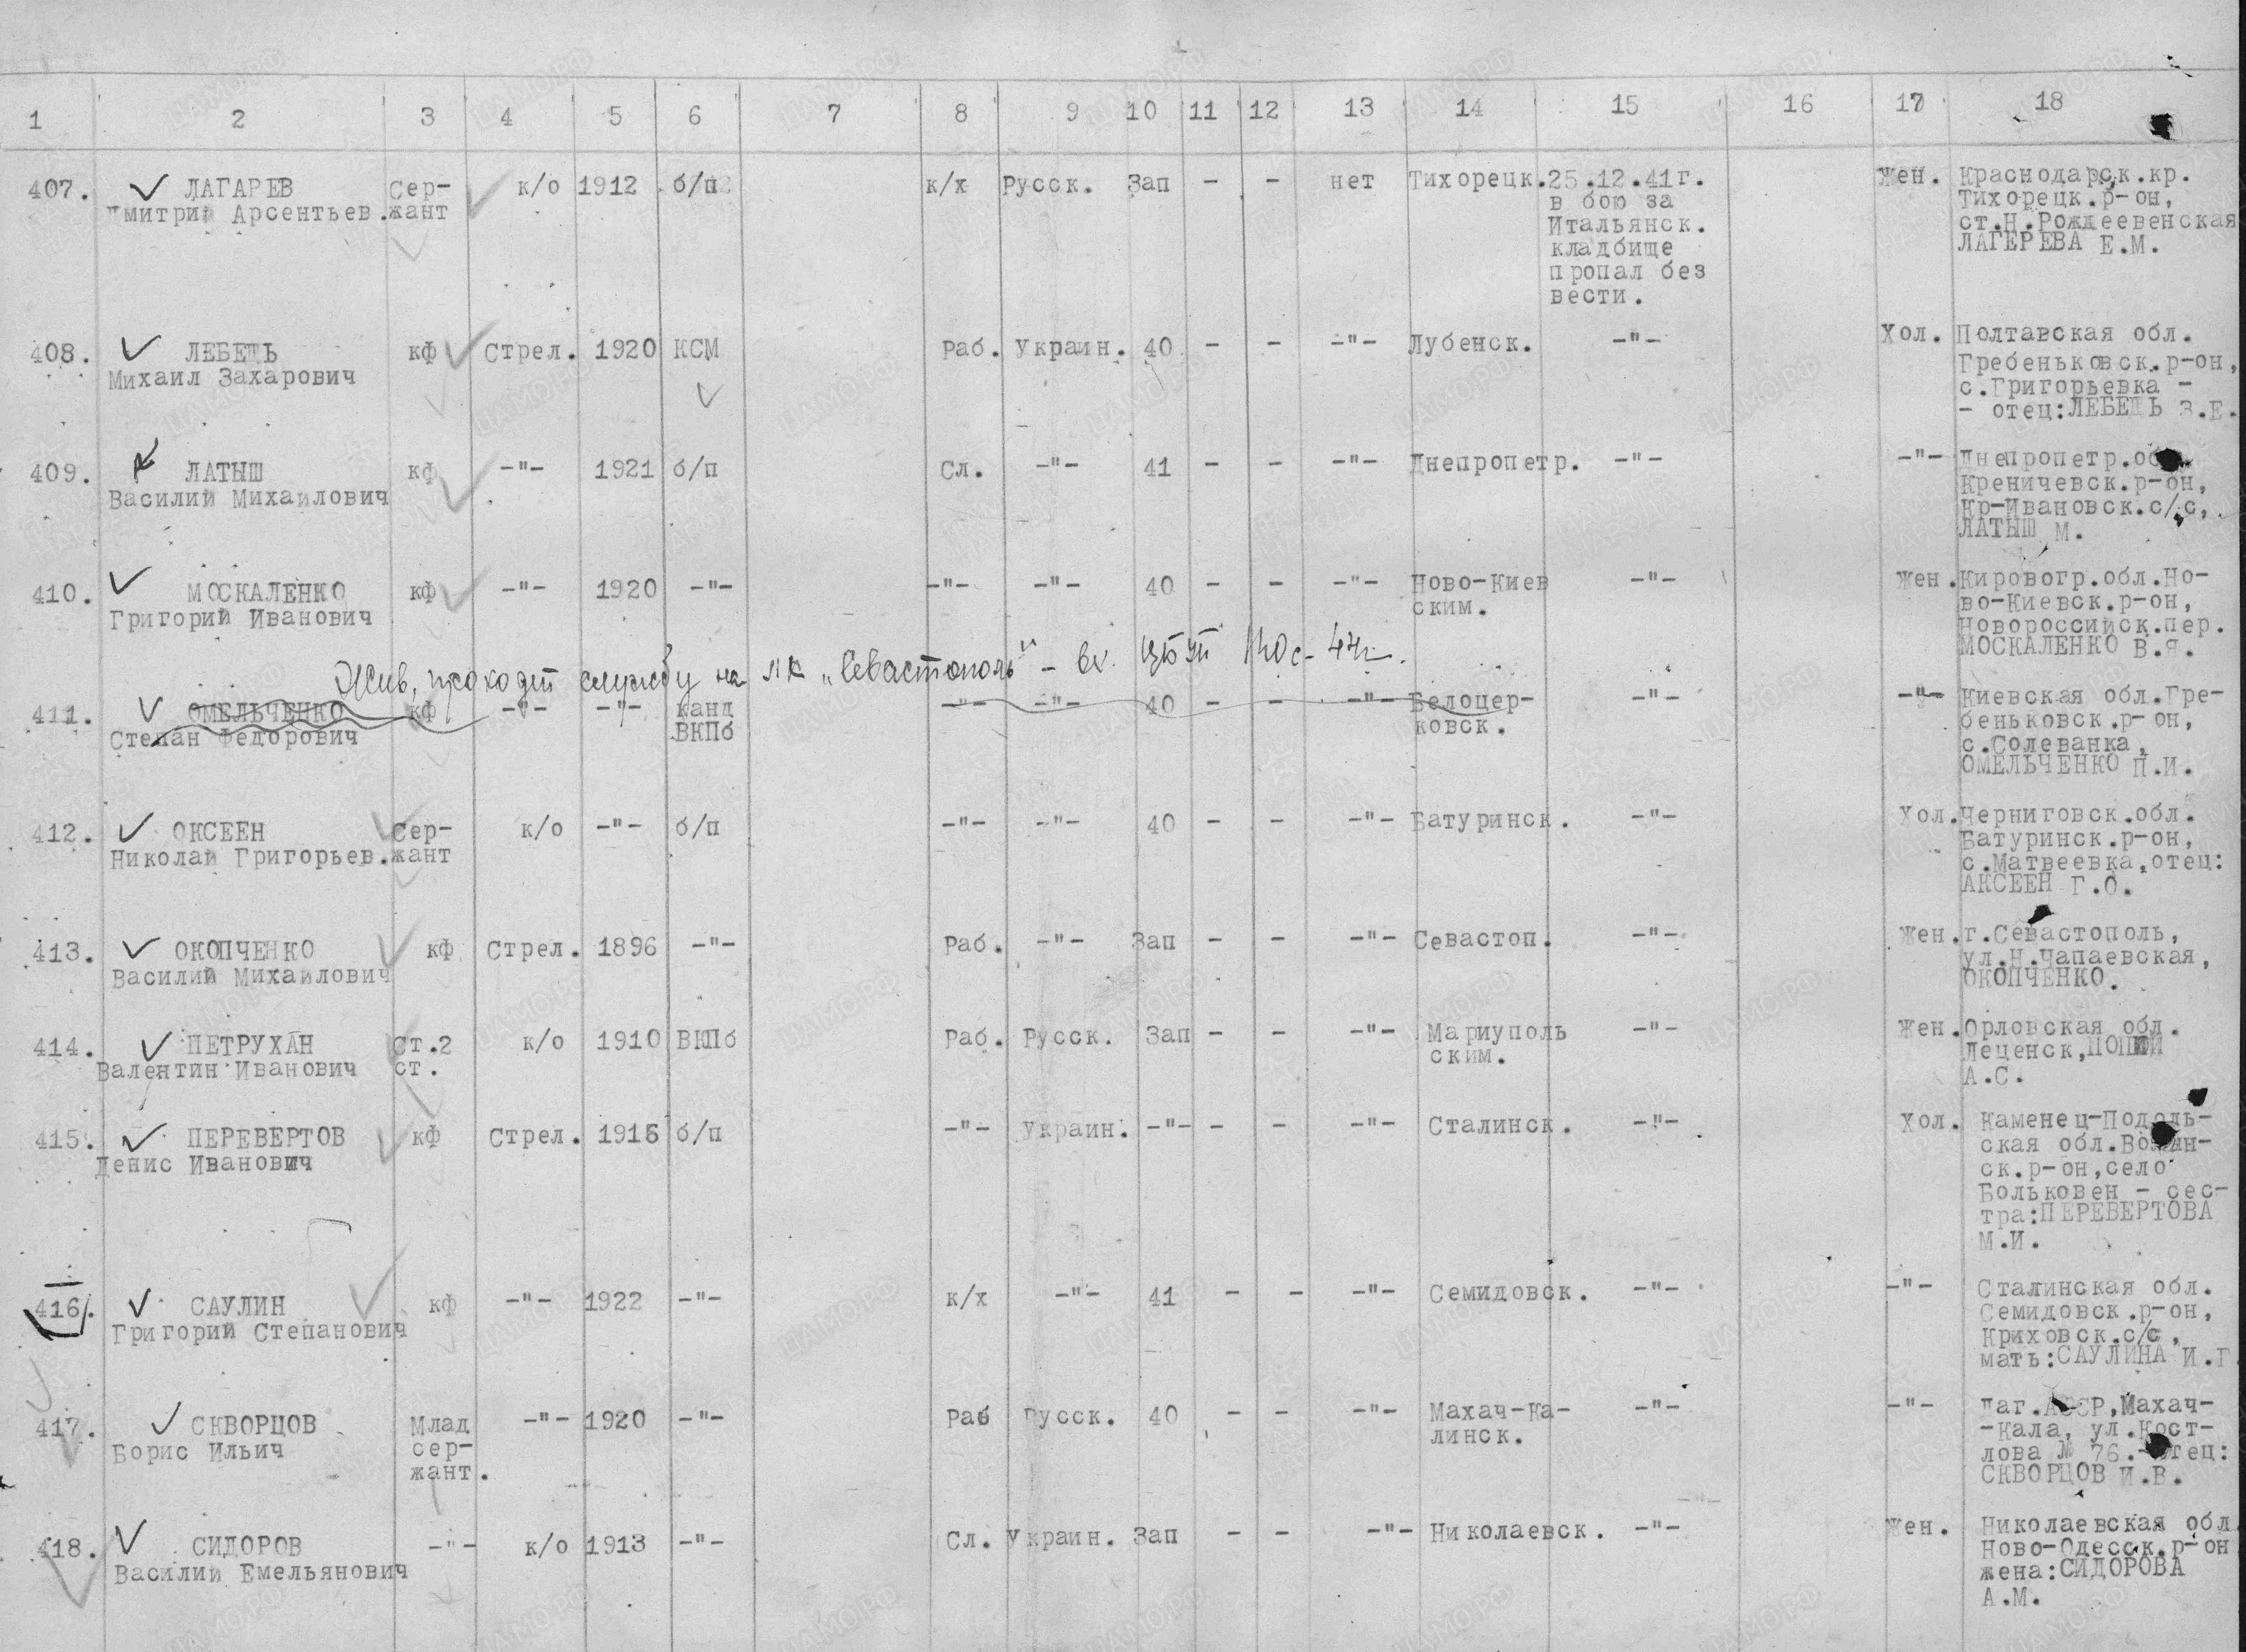 1 2 3 4 5 6 7 8 9 10 11 12 13 14 15 16 17 18
407. ЛАГАРЕВ Сер- к/о 1912 б/п к/х Русск. Зап - - нет Тихорецк. 25.12.41г. Жен. Краснодарск.кр.
Дмитрий Арсентьев. жант в бою за Тихорецк.р-он,
Итальянск. ст.Н.Рождеевенская
кладбище ЛАГЕРЕВА Е.М.
пропал без
вести.
408. ЛЕБЕДЬ кф Стрел. 1920 КСМ Раб. Украин. 40 - - -"- Лубенск. -"- Хол. Полтавская обл.
Михаил Захарович Гребеньковск.р-он,
с.Григорьевка -
- отец:ЛЕБЕДЬ З.Е.
409. ЛАТЫШ кф -"- 1921 б/п Сл. -"- 41 - - -"- Днепропетр. -"- -"- Днепропетр.обл.
Василий Михаилович Креничевск.р-он,
Кр-Ивановск.с/с,
ЛАТЫШ М.
410. МОСКАЛЕНКО кф -"- 1920 -"- -"- -"- 40 - - -"- Ново-Киев -"- Жен. Кировогр.обл.Но-
Григорий Иванович ским. во-Киевск.р-он,
Новороссийск.пер.
МОСКАЛЕНКО В.Я.
Жив, проходит службу на ЛК "Севастополь" - вх.
411. ОМЕЛЬЧЕНКО кф -"- -"- канд -"- -"- 40 - - -"- Белоцер- -"- -"- Киевская обл.Гре-
Степан Федорович ВКПб ковск. беньковск.р-он,
с.Солеванка,
ОМЕЛЬЧЕНКО П.И.
412. ОКСЕЕН Сер- к/о -"- б/п -"- -"- 40 - - -"- Батуринск. -"- Хол. Черниговск.обл.
Николай Григорьев. жант Батуринск.р-он,
с.Матвеевка,отец:
АКСЕЕН Г.О.
413. ОКОПЧЕНКО кф Стрел. 1896 -"- Раб. -"- Зап - - -"- Севастоп. -"- Жен. г.Севастополь,
Василий Михаилович ул.Н.Чапаевская,
ОКОПЧЕНКО.
414. ПЕТРУХАН Ст.2 к/о 1910 ВКПб Раб. Русск. Зап - - -"- Мариуполь -"- Жен. Орловская обл.
Валентин Иванович ст. ским. Леценск,
А.С.
415. ПЕРЕВЕРТОВ кф Стрел. 1916 б/п -"- Украин. -"- - - -"- Сталинск. -"- Хол. Каменец-Подоль-
Денис Иванович ская обл.Волын-
ск.р-он,село
Больковен - сес-
тра:ПЕРЕВЕРТОВА
М.И.
416. САУЛИН кф -"- 1922 -"- к/х -"- 41 - - -"- Семидовск. -"- -"- Сталинская обл.
Григорий Степанович Семидовск.р-он,
Криховск.с/с,
мать:САУЛИНА И.Г.
417. СКВОРЦОВ Млад -"- 1920 -"- Раб Русск. 40 - - -"- Махач-Ка- -"- -"- Даг.АССР,Махач-
Борис Ильич сер- линск. -Кала, ул.Кост-
жант. лова № 76.-отец:
СКВОРЦОВ И.В.
418. СИДОРОВ -"- к/о 1913 -"- Сл. Украин. Зап - - -"- Николаевск. -"- Жен. Николаевская обл
Василий Емельянович Ново-Одесск.р-он
жена:СИДОРОВА
А.М.